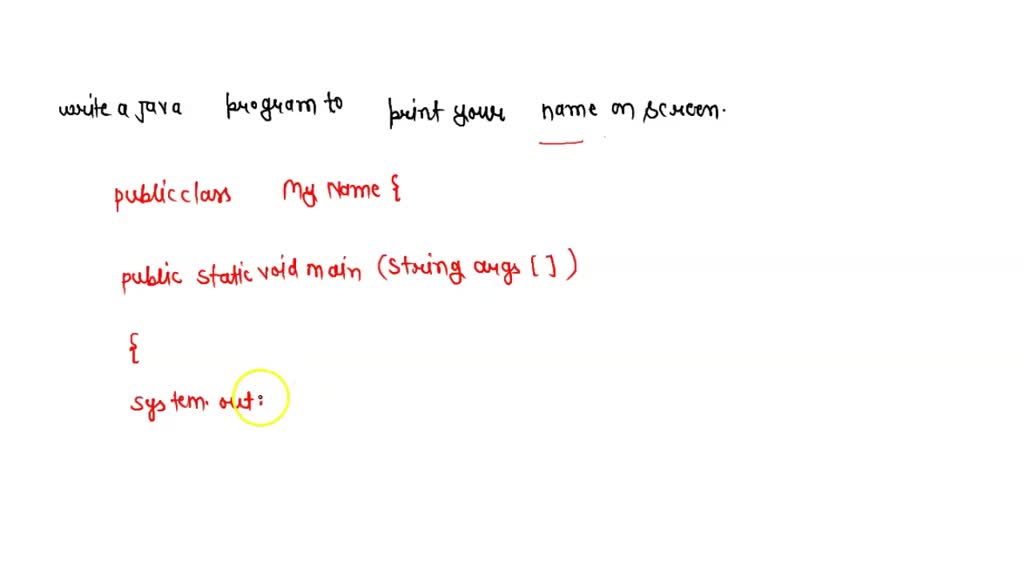 write a java program to print your name on screen.
public class My Name {
public static void main (string args [ ] )
{
system. out: